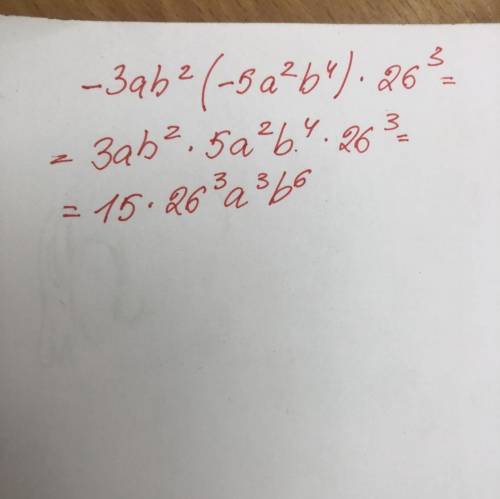 -3ab²(-5a²b⁴)·26³=
= 3ab²·5a²b⁴·26³=
= 15·26³a³b⁶